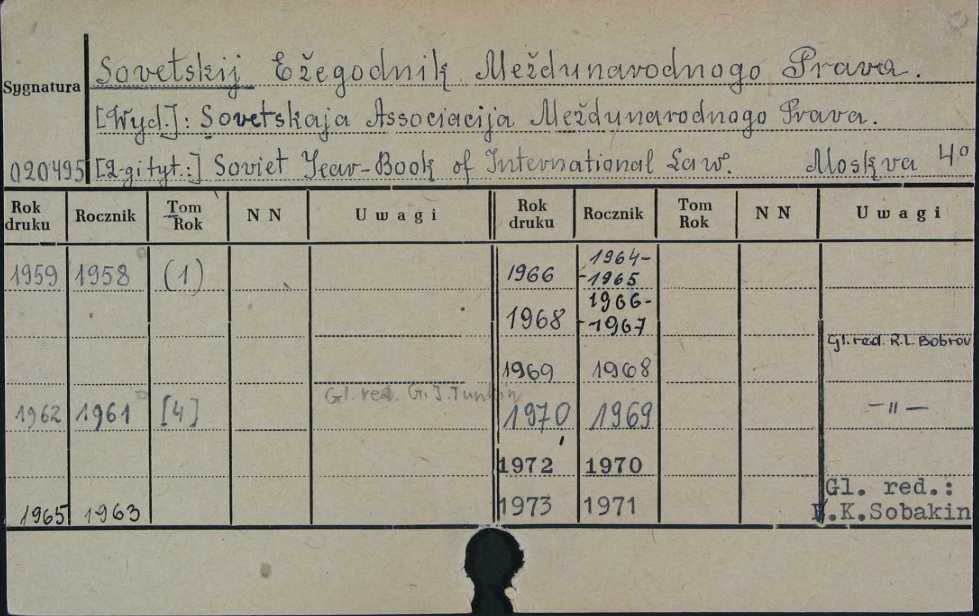 Sovetskij Ežegodnik Meždunarodnogo Prava.
Sygnatura
[Wyd.]: Sovetskaja Associacija Meždunarodnogo Prava.
020495 [2-gi tyt.:] Soviet Year-Book of International Law. Moskva 4°
Rok druku Rocznik Tom Rok N N Uwagi Rok druku Rocznik Tom Rok N N Uwagi
1959 1958 (1)
1962 1961 [4] Gl. red. G. I. Tunkin
1965 1963
1966 1964-1965
1968 1966-1967
1969 1968 Gl. red. R.L. Bobrov
1970 1969 —"—
1972 1970
1973 1971 Gl. red.:
.K.Sobakin